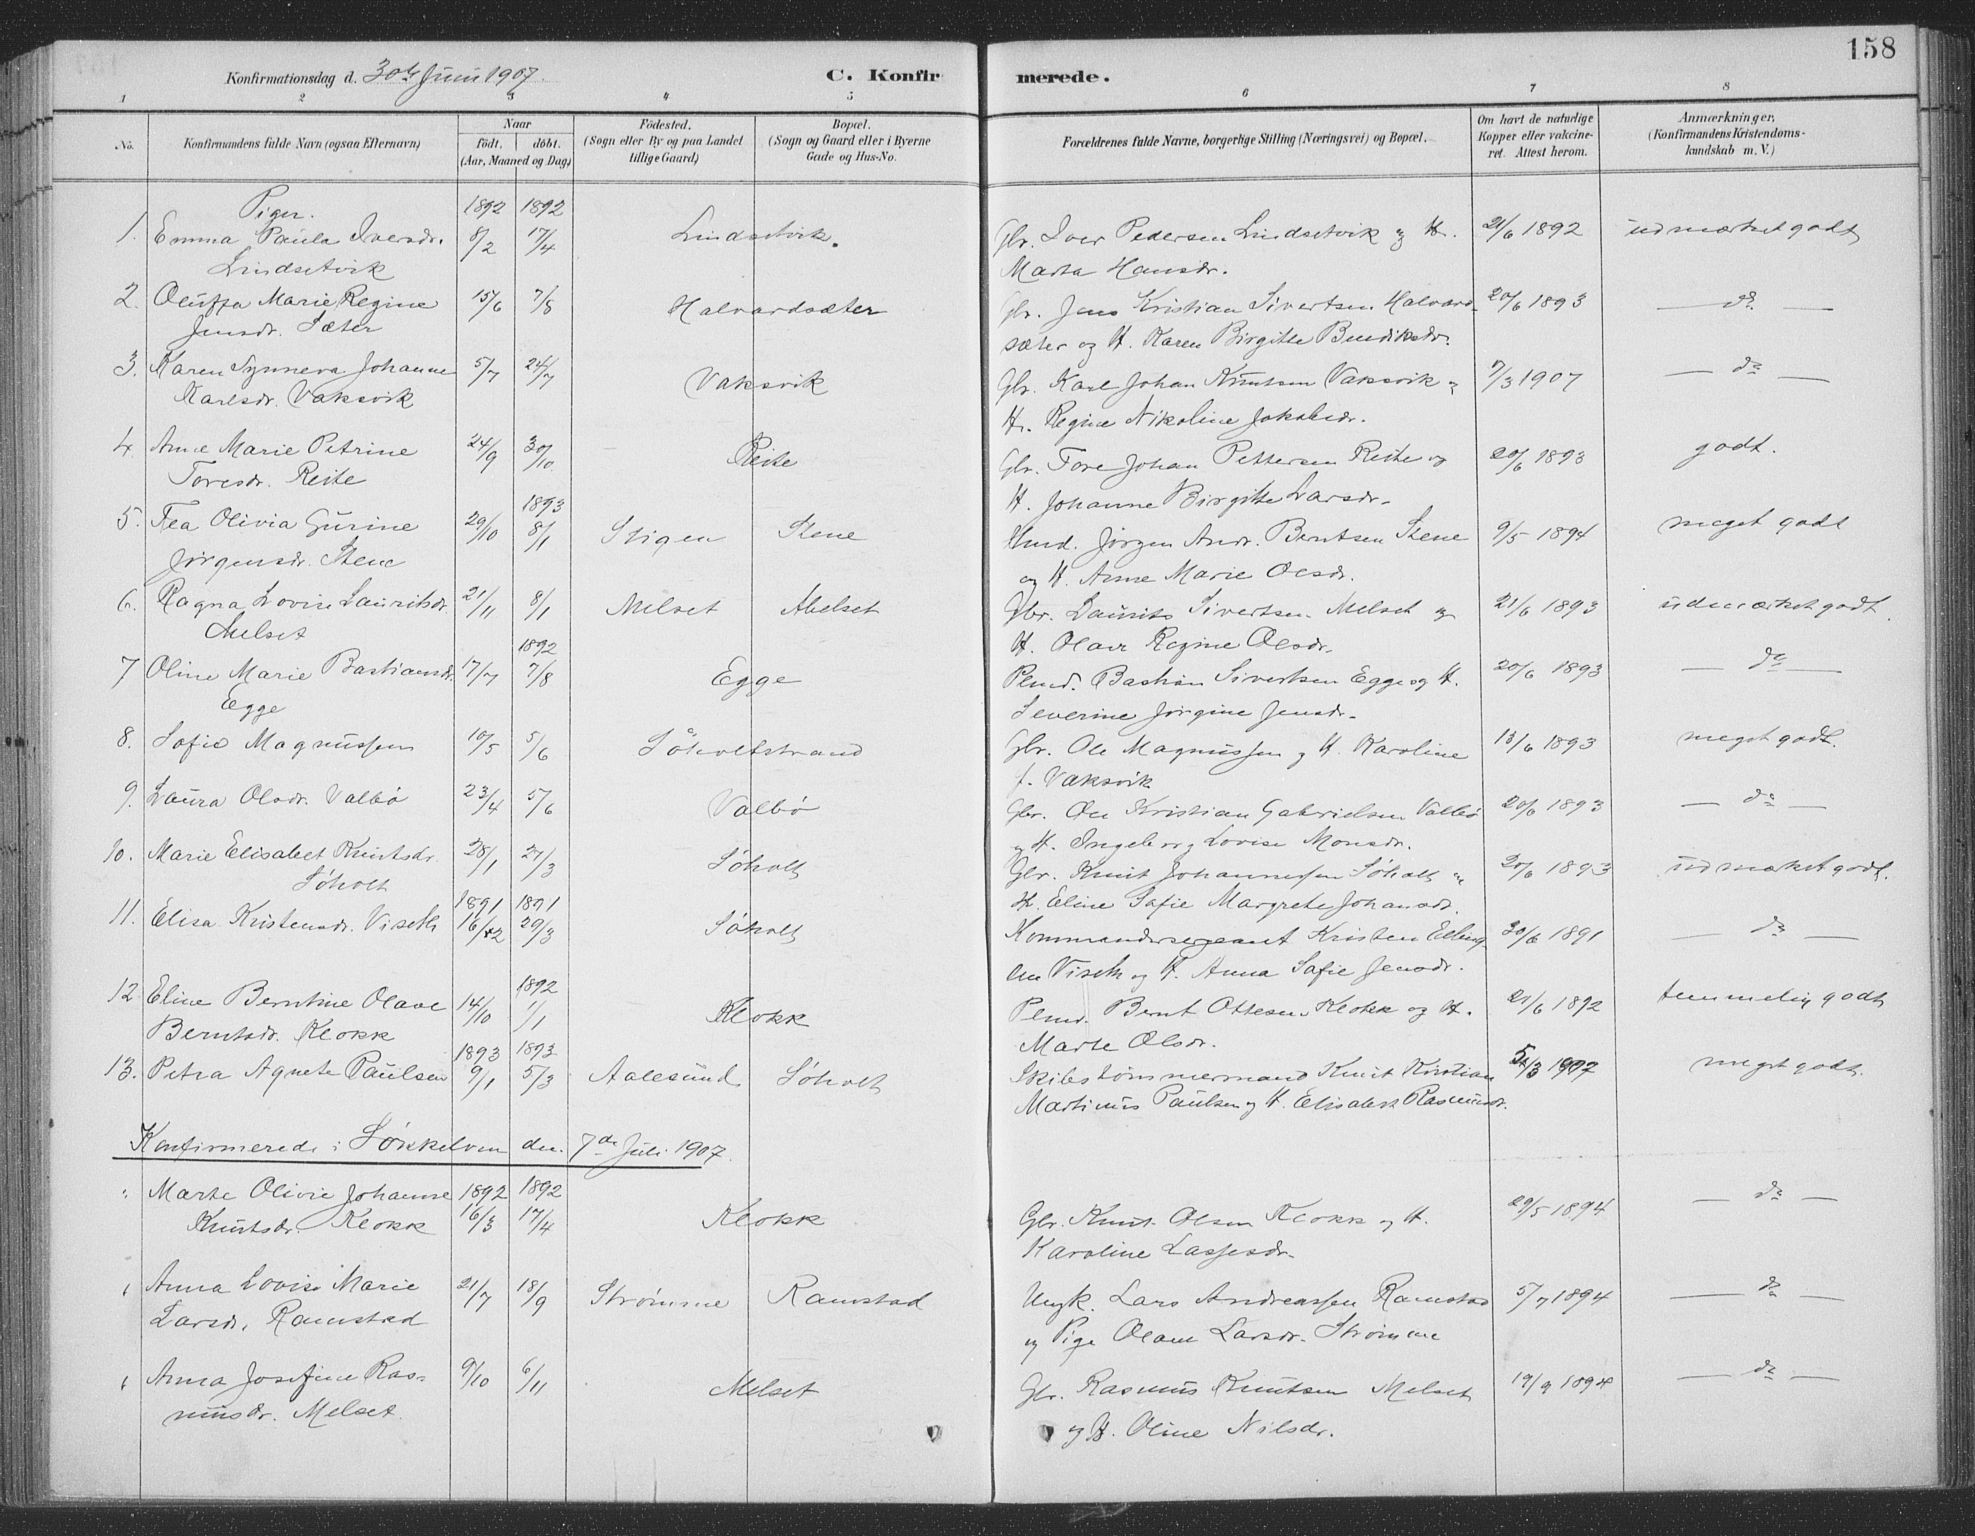 158
Konfirmationsdag d. 30te Juni 1907. C. Konfirmerede.
1 2 3 4 5 6 7 8
No. Konfirmandens fulde Navn (ogsaa Efternavn) Naar födt. döbt. (Aar, Maaned og Dag) Födested. (Sogn eller By og paa Landet tillige Gaard) Bopæl. (Sogn og Gaard eller i Byerne Gade og Hus-No. Forældrenes fulde Navne, borgerlige Stilling (Næringsvei) og Bopæl. Om havt de naturlige Kopper eller vakcineret. Attest herom. Anmærkninger. (Konfirmandens Kristendomskundskab m. V.)
Piger. 1892 1892
1. Emma Paula Iversdr. 8/2 17/4 Lindsetvik. Gbr. Iver Pedersen Lindsetvik og H. 21/6 1892 udmærket godt
Lindsetvik Marta Hansdr.
2. Oluffa Marie Regine 15/6 7/8 Halvardsæter Gbr. Jens Kristian Sivertsen Halvard- 20/6 1893 — do —
Jensdr. Sæter sæter og H. Karen Birgitte Bendiksdr.
3. Karen Synneva Johanne 5/7 24/7 Vaksvik Gbr. Karl Johan Knutsen Vaksvik og 7/3 1907 — do —
Karlsdr. Vaksvik H. Regine Nikoline Jakobsdr.
4. Anne Marie Petrine 24/9 30/10 Reite Gbr. Tore Johan Pettersen Reite og 20/6 1893 godt.
Toresdr. Reite H. Johanne Birgitte Larsdr.
1893
5. Tea Olivia Gurine 29/10 8/1 Stigen Stene Hmd. Jørgen Andr. Berntsen Stene 9/5 1894 meget godt
Jørgensdr. Stene og H. Anne Marie Olsdr.
6. Ragna Lovise Lauritsdr. 21/11 8/1 Melset Melset Gbr. Laurits Sivertsen Melset og 21/6 1893 udmærket godt
Melset H. Olave Regine Olsdr.
1892
7 Oline Marie Bastiansdr. 17/7 7/8 Egge Plmd. Bastian Sivertsen Egge og H. 20/6 1893 — do —
Egge Severine Jørgine Jensdr.
8. Sofie Magnussen 10/5 5/6 Søholtstrand Gbr. Ole Magnussen og H. Karoline 13/6 1893 meget godt.
f. Vaksvik
9. Laura Olsdr. Valbø 23/4 5/6 Valbø Gbr. Ole Kristian Gabrielsen Valbø 20/6 1893 — do —
og H. Ingeborg Lovise Monsdr.
10. Marie Elisabet Knutsdr. 28/1 21/3 Søholt Gbr. Knut Johannessen Søholt og 20/6 1893 udmæket godt.
Søholt H. Eline Sofie Margrete Johansdr.
1891 1891
11. Elisa Kristensdr. Viseth 16/2 29/3 Søholt Kommandersergeant Kristen Elling- 30/6 1891 — do —
sen Viseth og H. Anna Sofie Jensdr.
1892
12 Eline Berntine Olave 14/10 1/1 Klokk Plmd. Bernt Ottesen Klokk og H. 21/6 1892 temmelig godt
Berntsdr. Klokk Marte Olsdr.
1893 1893
13. Petra Agnete Paulsen 9/1 5/3 Aalesund Søholt Skibstømmermand Knut Kristian 5/3 1907 meget godt.
Martinus Paulsen og H. Elisabert Rasmusdr.
Konfirmerede i Sökkelven den 7de Juli 1907.
" Marte Olivie Johanne 1892 1892
Knutsdr. Klokk 16/3 17/4 Klokk Gbr. Knut Olsen Klokk og H. 29/5 1894 — do —
Karoline Lassesdr.
" Anna Lovise Marie 21/7 18/9 Strømme Ramstad Ungk. Lars Andreassen Ramstad 5/7 1894 — do —
Larsdr. Ramstad og Pige Olave Larsdr. Strømme
" Anna Josefine Ras- 9/10 6/11 Melset Gbr. Rasmus Knutsen Melset 19/9 1894 — do —
musdr. Melset. og H. Oline Nilsdr.